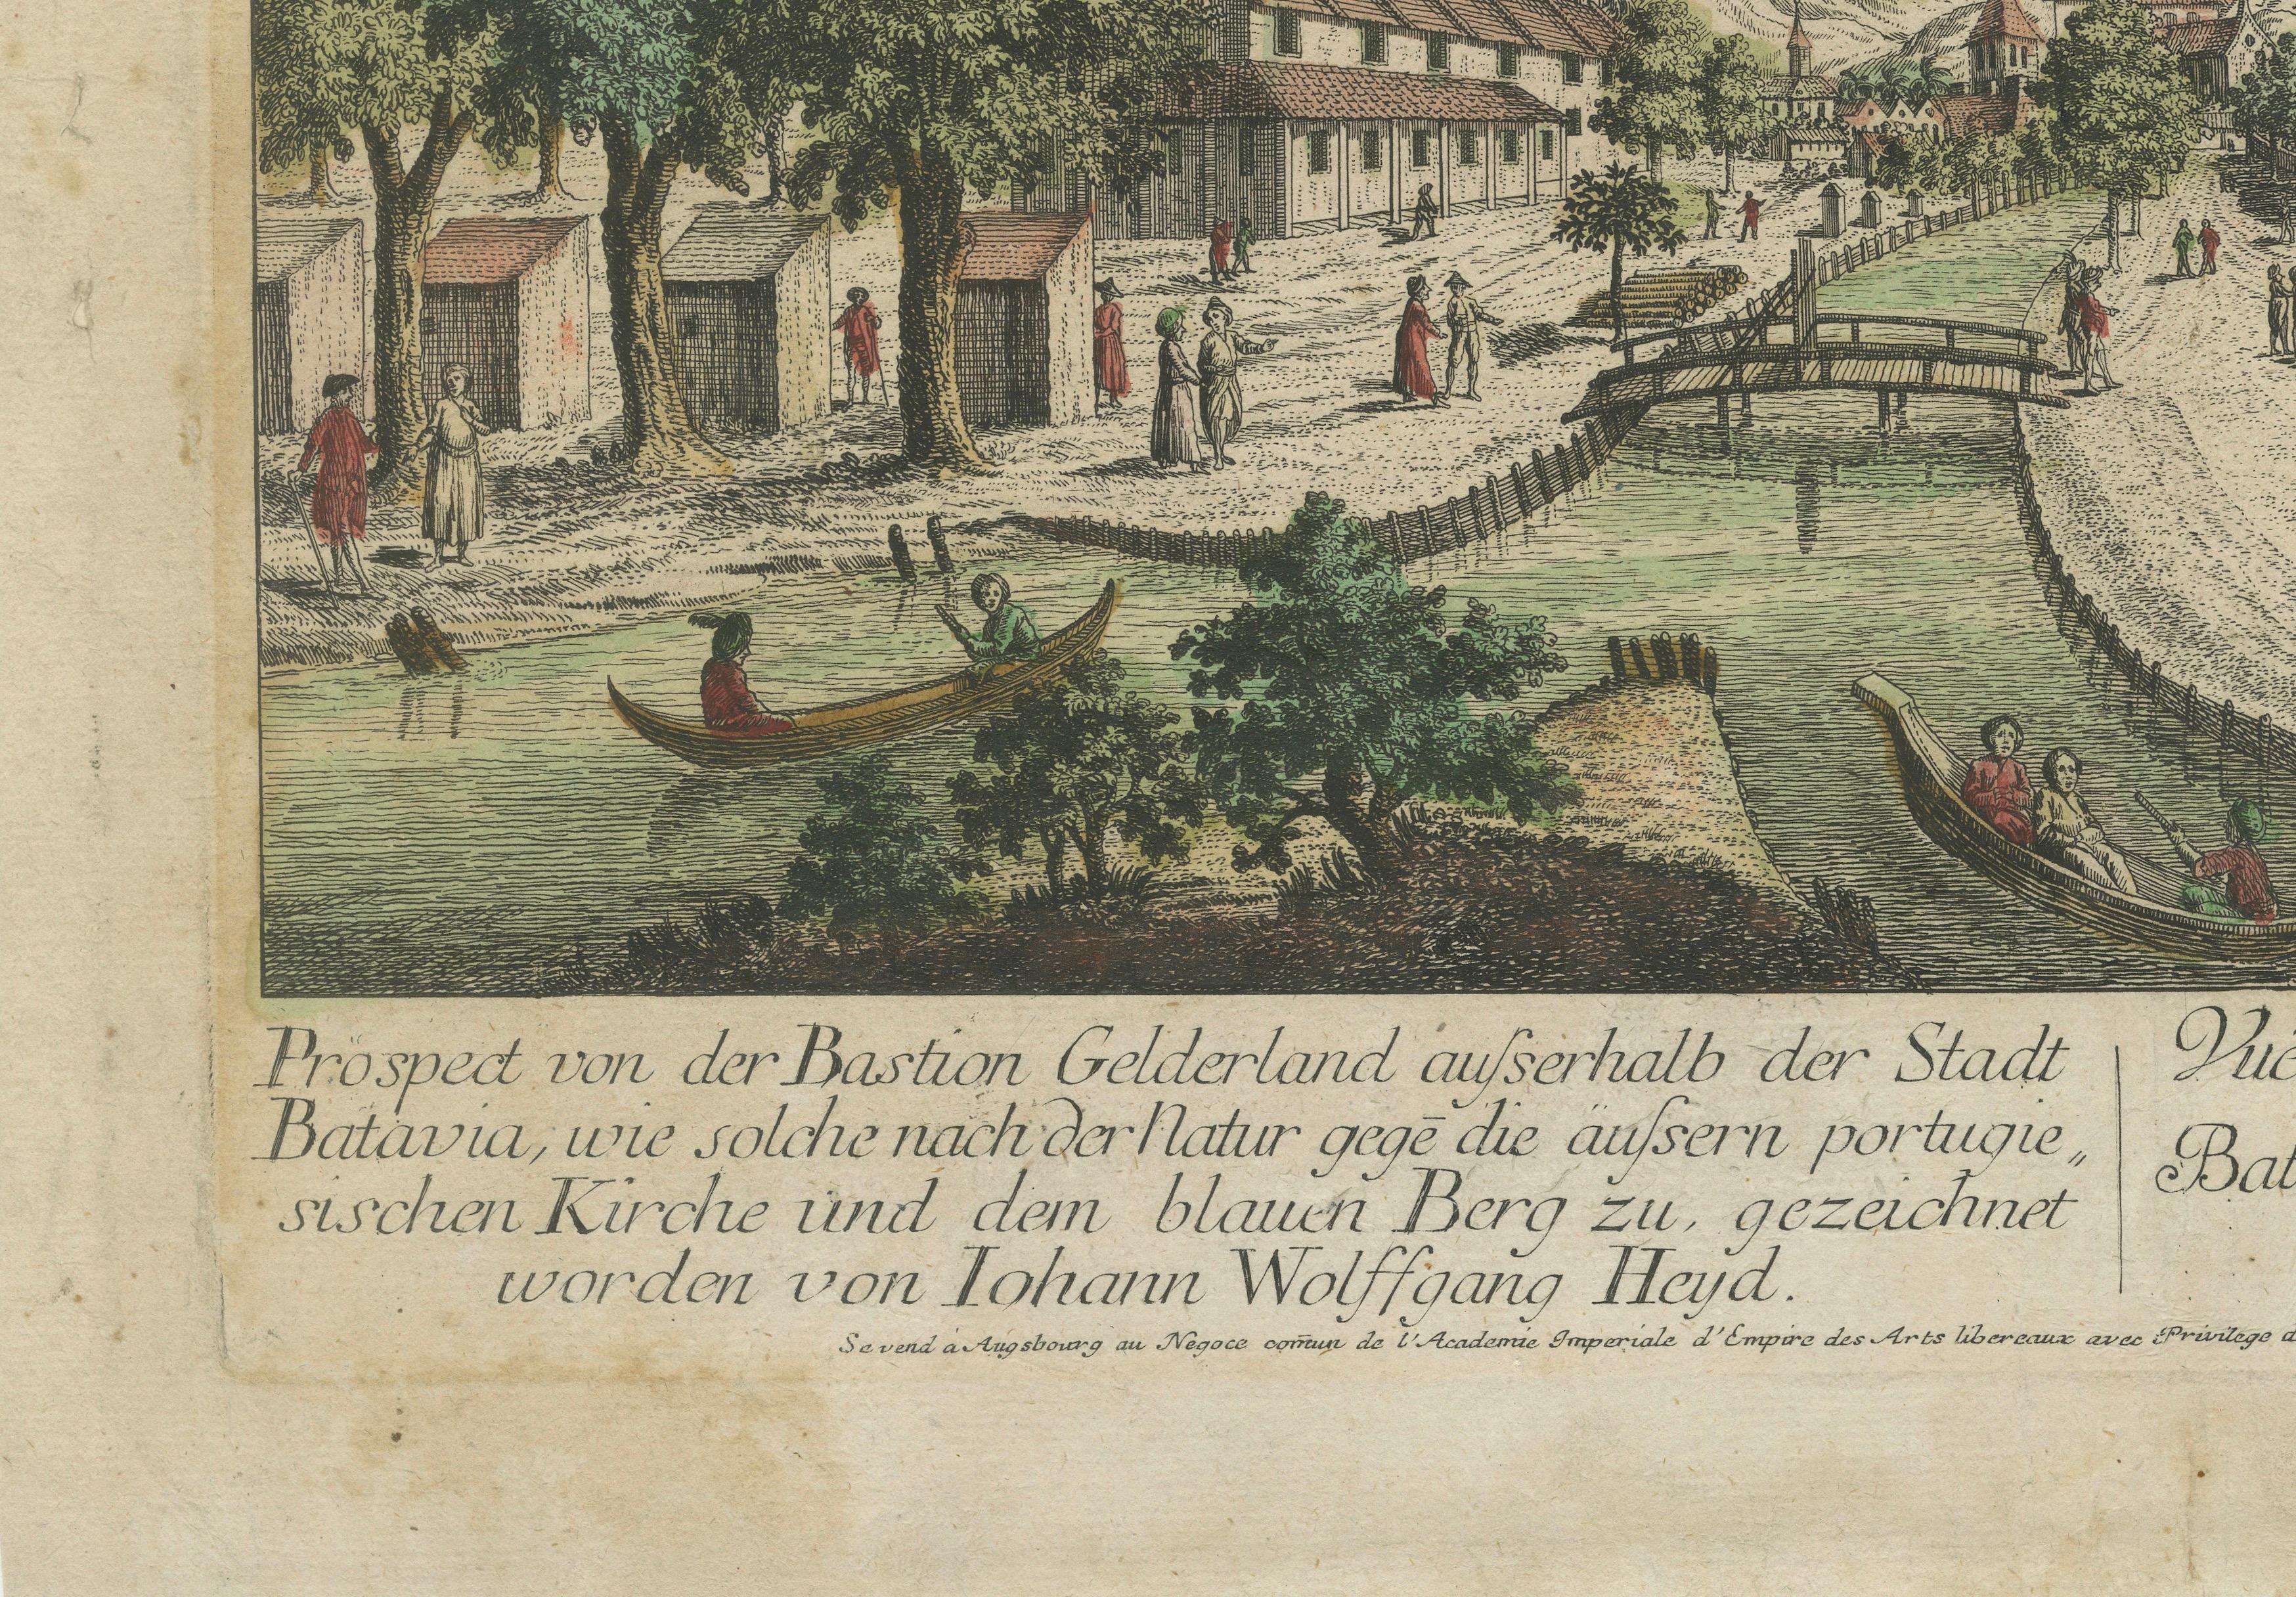 Prospect von der Bastion Gelderland auſserhalb der Stadt
Batavia, wie solche nach der Natur gegē die äuſsern portugie„
sischen Kirche und dem blauen Berg zu, gezeichnet
worden von Iohann Wolffgang Heyd.
Vüe
Bat
Se vend à Augsbourg au Negoce com̄un de l'Academie Imperiale d'Empire des Arts libereaux avec Privilege d